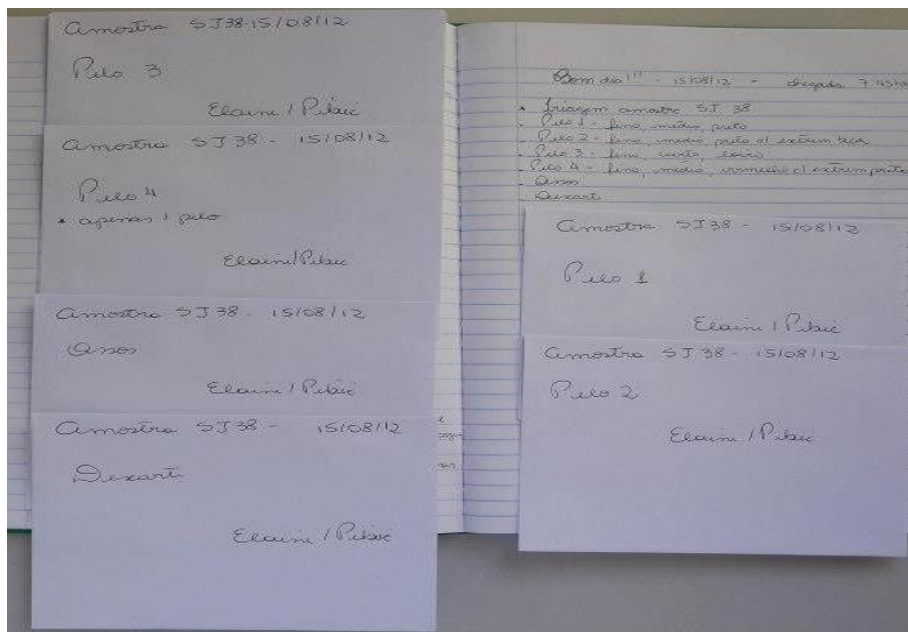 Amostra SJ38-15/08/12
Pelo 3
Elaini / Pibic
Amostra SJ38 - 15/08/12
Pelo 4
* apenas 1 pelo
Elaini / Pibic
Amostra SJ38 - 15/08/12
Ossos
Elaini / Pibic
Amostra SJ38 - 15/08/12
Descarte
Elaini / Pibic
Bom dia!!! - 15/08/12 - chegada 7:45
* Triagem amostra SJ 38
- Pelo 1 - fino, médio, preto
- Pelo 2 - fino, médio, preto c/ extrem
- Pelo 3 - fino, curto, loiro
- Pelo 4 - fino, médio, vermelho c/ extrem preta
- Ossos
- Descarte
Amostra SJ38 - 15/08/12
Pelo 1
Elaini / Pibic
Amostra SJ38 - 15/08/12
Pelo 2
Elaini / Pibic